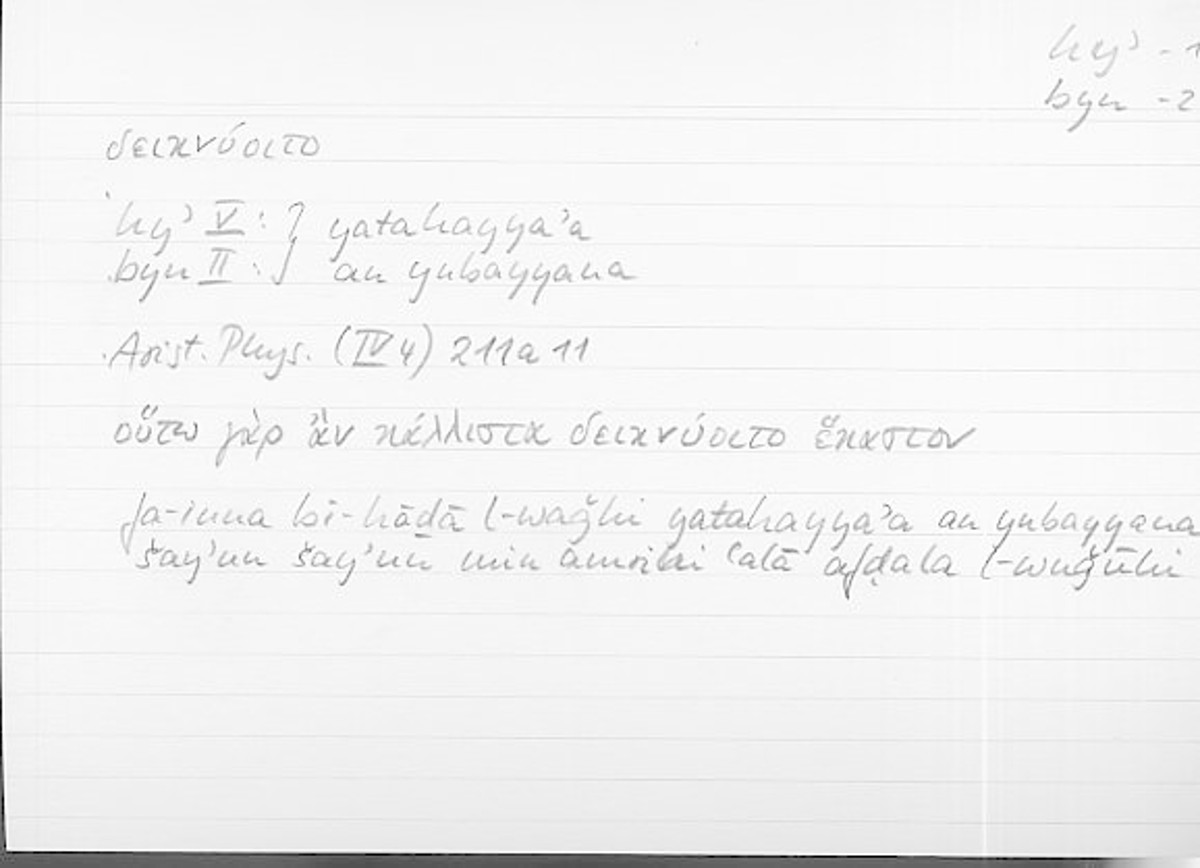 hyʾ - 1
byn - 2
δεικνύοιτο
hyʾ V : } yatahayyaʾa
byn II : } an yubayyana
Arist. Phys. (IV 4) 211a 11
οὕτω γὰρ ἂν κάλλιστα δεικνύοιτο ἕκαστον
fa-inna bi-hāḏā l-waǧhi yatahayyaʾa an yubayyana
šayʾun šayʾun min amrihi ʿalā afḍala l-wuǧūhi